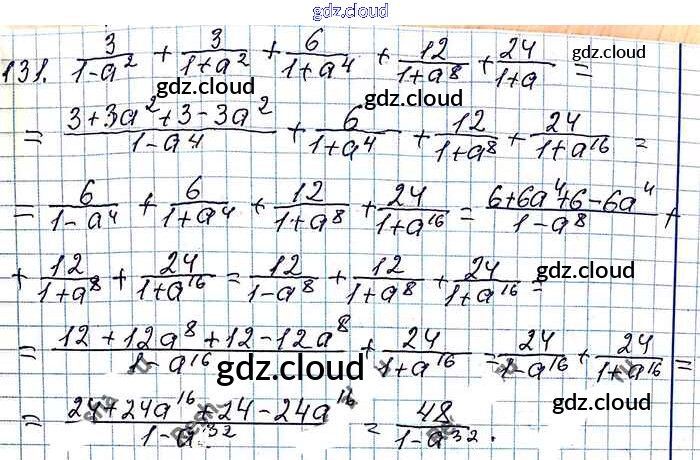 gdz.cloud
131. 3/(1-a²) + 3/(1+a²) + 6/(1+a⁴) + 12/(1+a⁸) + 24/(1+a) =
gdz.cloud
gdz.cloud
gdz.cloud
= (3+3a²+3-3a²)/(1-a⁴) + 6/(1+a⁴) + 12/(1+a⁸) + 24/(1+a¹⁶) =
gdz.cloud
gdz.cloud
= 6/(1-a⁴) + 6/(1+a⁴) + 12/(1+a⁸) + 24/(1+a¹⁶) = (6+6a⁴+6-6a⁴)/(1-a⁸) +
+ 12/(1+a⁸) + 24/(1+a¹⁶) = 12/(1-a⁸) + 12/(1+a⁸) + 24/(1+a¹⁶) =
gdz.cloud
= (12+12a⁸+12-12a⁸)/(1-a¹⁶) + 24/(1+a¹⁶) = 24/(1-a¹⁶) + 24/(1+a¹⁶) =
gdz.cloud
= (24+24a¹⁶+24-24a¹⁶)/(1-a³²) = 48/(1-a³²).
gdz.cloud
gdz.cloud